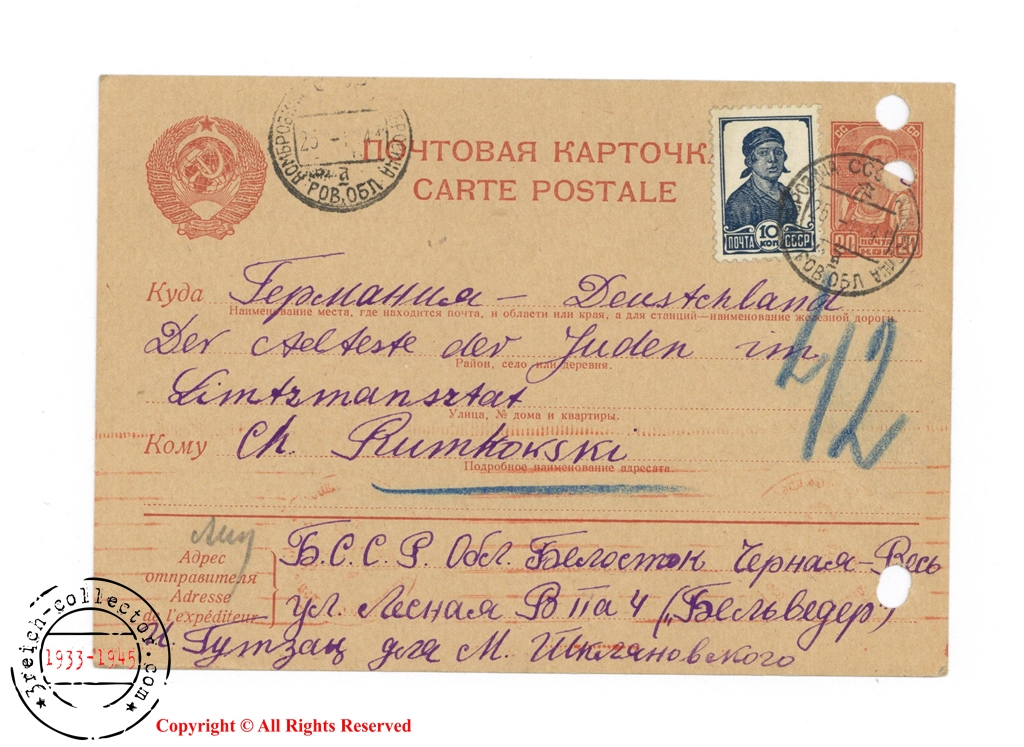 ПОЧТОВАЯ КАРТОЧКА
CARTE POSTALE
РОВ.ОБЛ
а
25
10
КОП
ПОЧТА
СССР
СС СР
20 ПОЧТА 20
РОВ.ОБЛ
Куда Германия – Deustchland
Наименование места, где находится почта, и области или края, а для станций—наименование железной дороги
Der Aelteste der Juden im
Район, село или деревня.
Limtzmansztat
Улица, № дома и квартиры.
412
Кому Ch. Rumkowski
Подробное наименование адресата
Адрес отправителя
Adresse de l'expéditeur
Б.С.С.Р. Обл. Белосток Черная-Весь
ул. Лесная 4 („Бельведер”)
И Гутзац для М. Шкляновского
3reich-collector.com
1933-1945
Copyright © All Rights Reserved